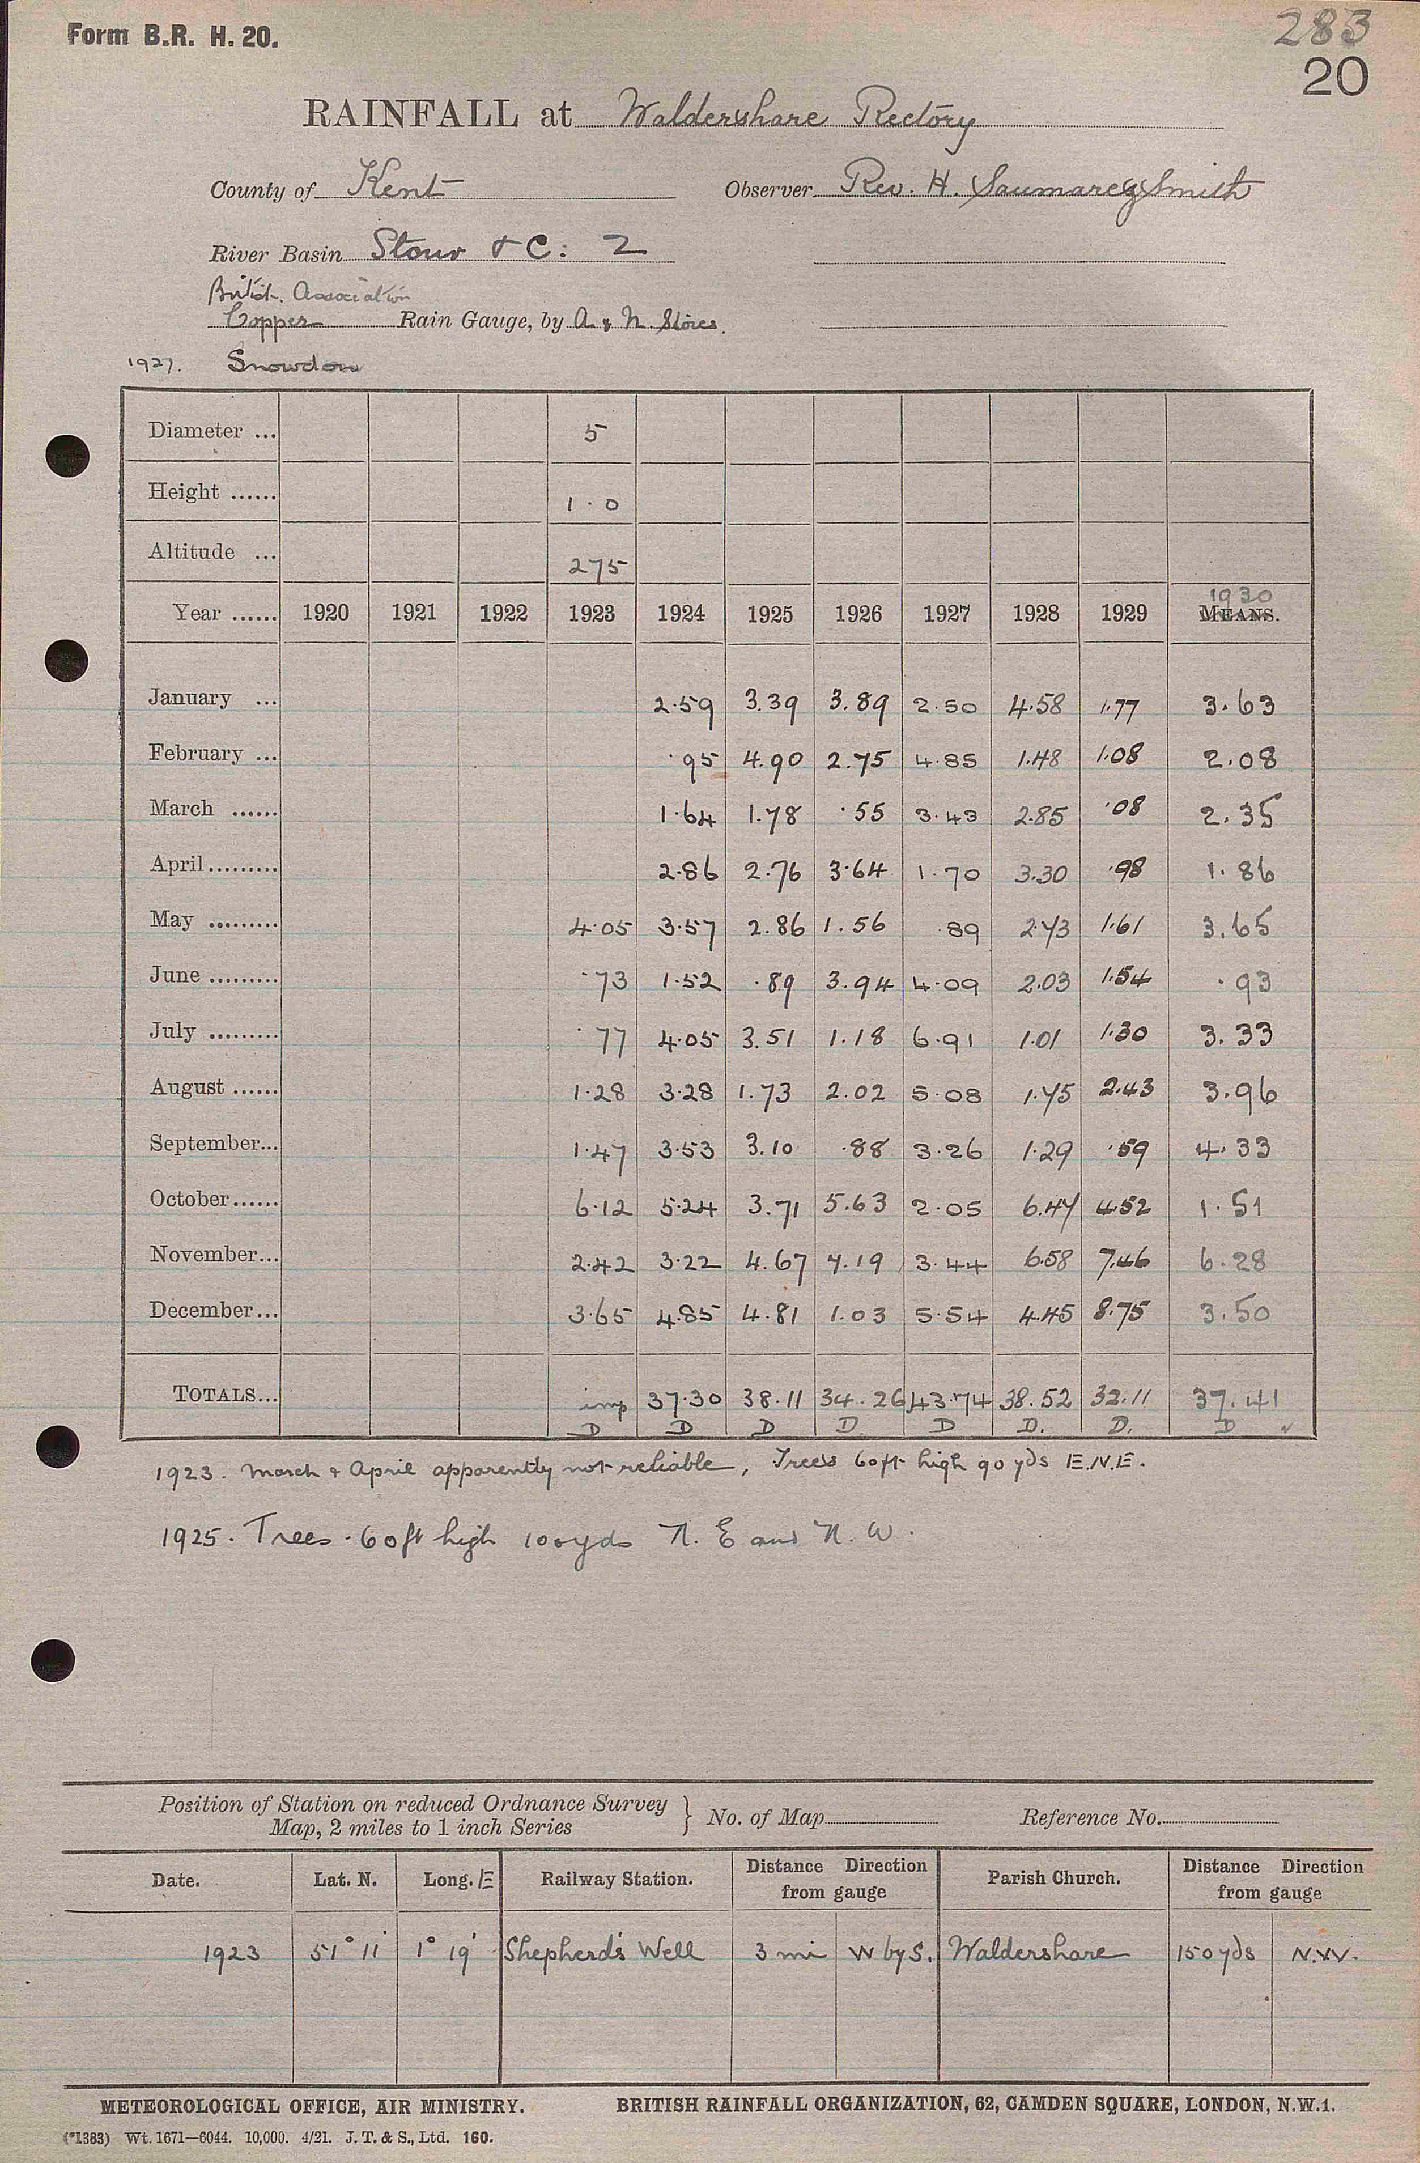 Form B.R. H. 20.
283
20
RAINFALL at Waldershare Rectory
County of Kent Observer Rev. H. Saumarez Smith
River Basin Stour & C: 2
British Association
Copper Rain Gauge, by A & N. Stores.
1927. Snowdon
Diameter ... 5
Height ...... 1 . 0
Altitude ... 275
1930
Year ...... 1920 1921 1922 1923 1924 1925 1926 1927 1928 1929 MEANS.
January ... 2.59 3.39 3.89 2.50 4.58 1.77 3.63
February ... .95 4.90 2.75 4.85 1.48 1.08 2.08
March ...... 1.64 1.78 .55 3.43 2.85 .08 2.35
April ......... 2.86 2.76 3.64 1.70 3.30 .98 1.86
May ......... 4.05 3.57 2.86 1.56 .89 2.73 1.61 3.65
June ......... .73 1.52 .89 3.94 4.09 2.03 1.54 .93
July ......... .77 4.05 3.51 1.18 6.91 1.01 1.30 3.33
August ...... 1.28 3.28 1.73 2.02 5.08 1.75 2.43 3.96
September... 1.47 3.53 3.10 .88 3.26 1.29 .59 4.33
October ...... 6.12 5.24 3.71 5.63 2.05 6.47 4.52 1.51
November... 2.42 3.22 4.67 7.19 3.44 6.58 7.46 6.28
December... 3.65 4.85 4.81 1.03 5.54 4.45 8.75 3.50
TOTALS... imp 37.30 38.11 34.26 43.74 38.52 32.11 37.41
D D D D. D D. D. D ✓
1923. March & April apparently not reliable, Trees 60ft high 90 yds E.N.E.
1925. Trees . 60 ft high 100yds N. E and N. W.
Position of Station on reduced Ordnance Survey
Map, 2 miles to 1 inch Series } No. of Map Reference No.
Date. Lat. N. Long. E Railway Station. Distance Direction from gauge Parish Church. Distance Direction from gauge
1923 51° 11' 1° 19' Shepherd's Well 3 mi W by S. Waldershare 150 yds N.W.
METEOROLOGICAL OFFICE, AIR MINISTRY. BRITISH RAINFALL ORGANIZATION, 62, CAMDEN SQUARE, LONDON, N.W.1.
(*1383) Wt. 1671—6044. 10,000. 4/21. J. T. & S., Ltd. 160.